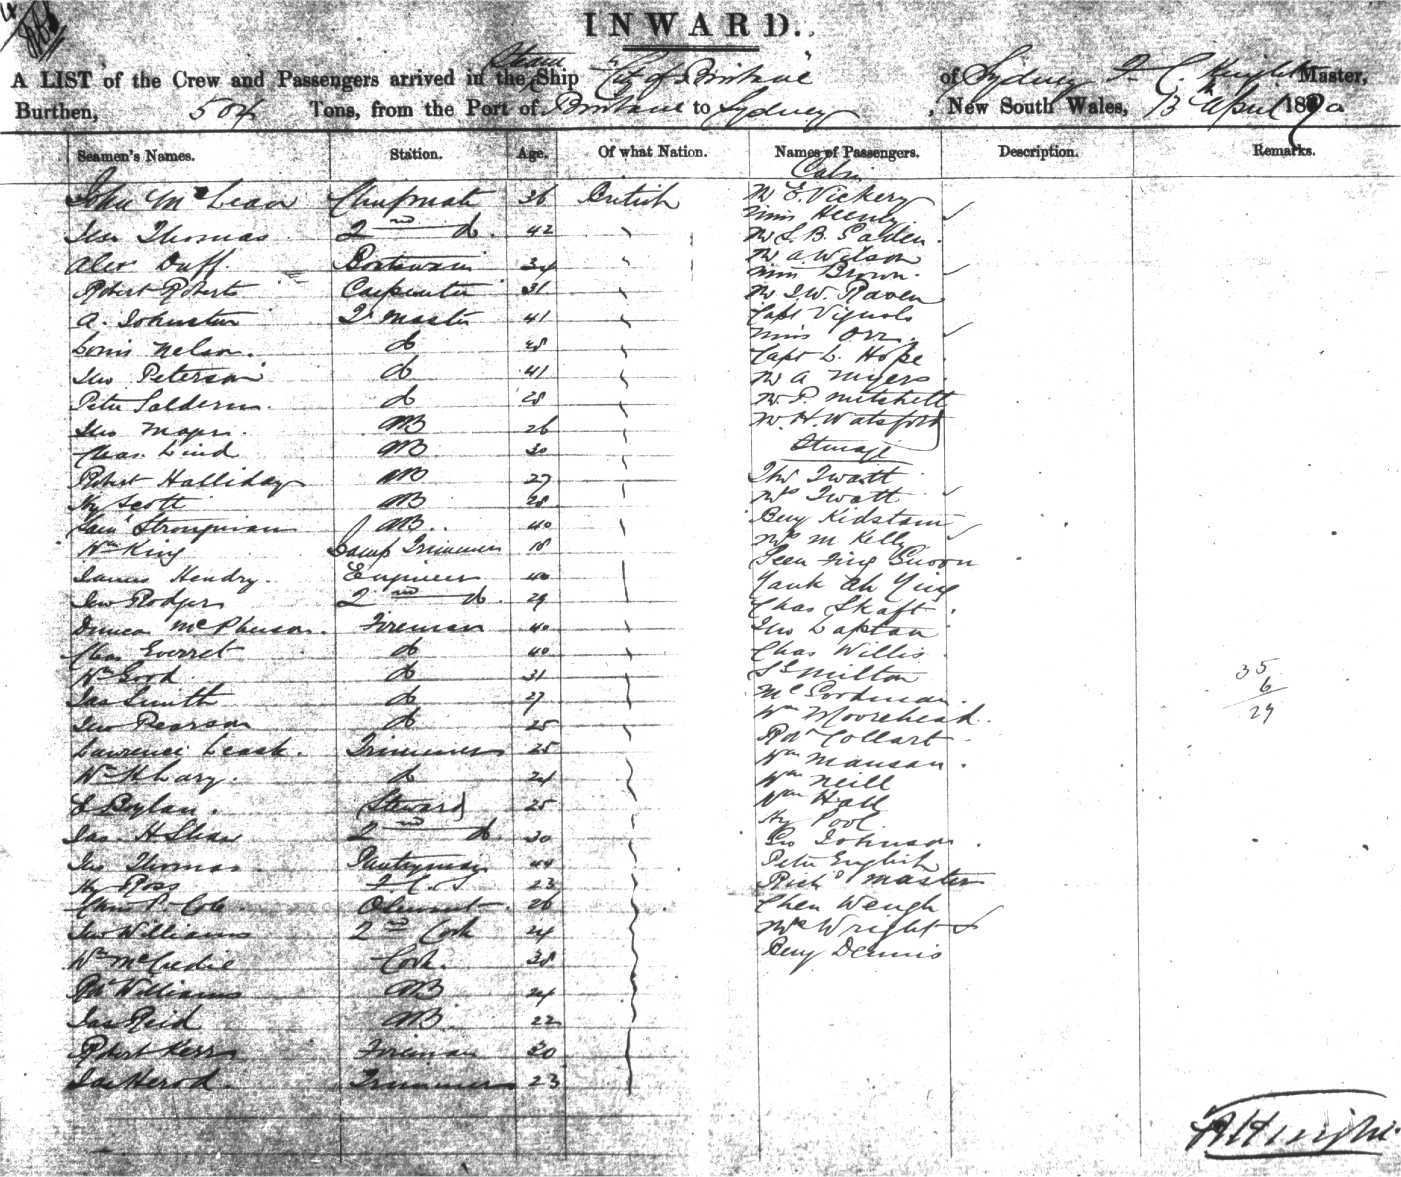 INWARD.
A LIST of the Crew and Passengers arrived in the Steam Ship "City of Brisbane" of Sydney, Knight Master,
Burthen, 504 Tons, from the Port of Brisbane to Sydney, New South Wales, 13th April 1890
Seamen's Names. Station. Age. Of what Nation. Names of Passengers. Description. Remarks.
Cabin
John McLean Chiefmate 36 British Mr E. Vickery
Miss Heenly
Jno Thomas 2nd do. 42
Alex Duff. Boatswain 34 Mr A Wilson
Miss Brown.
Robert Roberts Carpenter 31 Mr J. W. Raven
A. Johnston Qr Master 41 Capt Vignols
Miss Orr.
Louis Nelson. do 28 Capt L. Hope
Jno Peterson do 41 Mr A Myers
Peter do 28 Mr P. Mitchell
Jno AB 26 Mr H. Watsford
Chas. Lind AB 30 Steerage
Robert Halliday AB 27 Thos Twatt
Hy Scott AB 28 Mrs Twatt
Saml Strongman AB. 40 Benj Kidstain
Wm King Lamp Trimmer 18 Mrs M Kelly
James Hendry. Engineer 40
Jno Rodgers 2nd do. 29 Chas Skaft.
Duncan McPherson. Fireman 40 Jno Laptan
Chas Everret do 40 Chas Willis
Wm Good do 31 Milton
Jas Smith do 27 McGoodman.
35
6
29
Jno Pearson do 25 Wm Moorehead
Lawrence Leask. Trimmer 25 Robt Collart
Wm H Cary. do 24 Wm Manson.
Wm Neill
E Boylan. Steward 25 Wm Hall
Hy Pool.
Jas. H Shaw 2nd do. 30 Geo Johnson.
Jno Thomas Pantryman 44 Peter English
Hy Ross 23 Richd Masters
Cole 26 Chen Wengh
Jno Williams 2nd Cook 24 Mrs Wright
Wm McCredie Cook. 38 Benj Dennis
Williams AB 24
Jas Reid AB. 22
Robert Kerr Fireman 30
Jas Herod. Trimmer 23